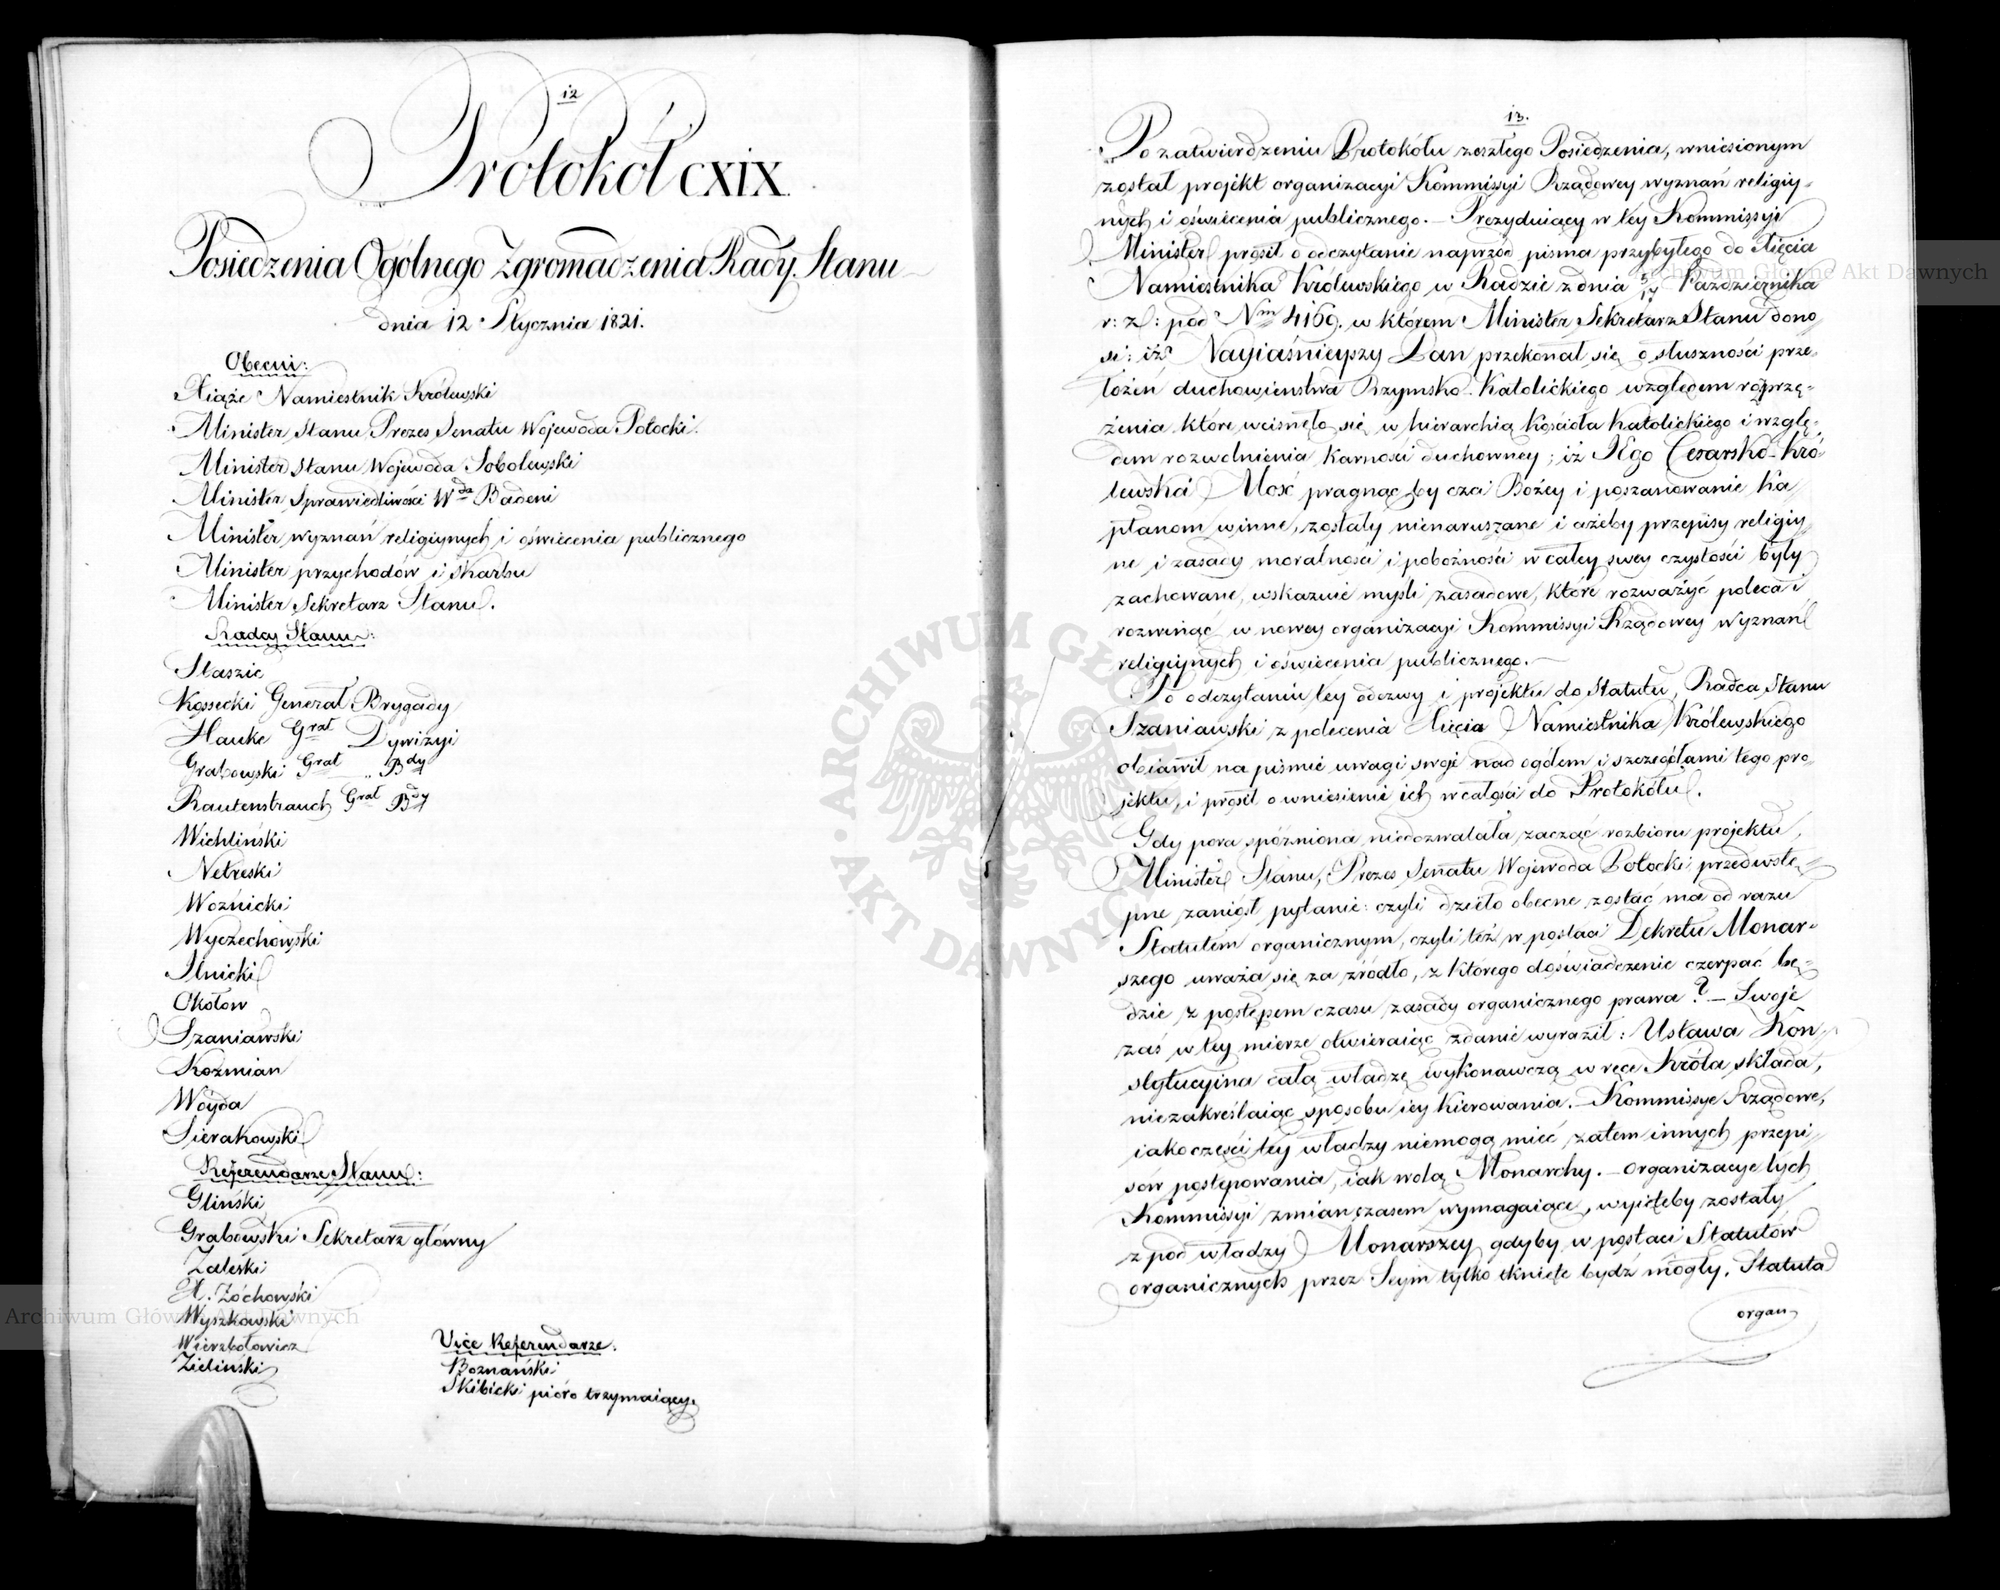 12
Protokół CXIX.
Posiedzenia Ogólnego Zgromadzenia Rady Stanu
dnia 12 Stycznia 1821.
Obecni:
Xiąże Namiestnik Królewski
Minister Stanu Prezes Senatu Wojewoda Potocki.
Minister Stanu Wojewoda Sobolewski
Minister Sprawiedliwości Wda Badeni
Minister wyznań religiynych i oświecenia publicznego
Minister przychodów i Skarbu
Minister Sekretarz Stanu.
Radcy Stanu:
Staszic
Kossecki Generał Brygady
Hauke Grał Dywizyi
Grabowski Grał „ Bdy
Rautenstrauch Grał Bdy
Wichliński
Netreski
Woźnicki
Wyczechowski
Ilnicki
Okołow
Szaniawski
Kozmian
Woyda
Sierakowski
Referendarze Stanu:
Gliński
Grabowski Sekretarz główny
Zaleski
X. Zóchowski
Wyszkowski
Wierzbołowicz
Zieliński
Vice Referendarze:
Boznański
Skibicki pióro trzymaiący.
13.
Po zatwierdzeniu Protokółu zeszłego Posiedzenia, wniesionym
został projekt organizacyi Kommissyi Rządowey wyznań religiy-
nych i oświecenia publicznego. – Prezyduiący w tey Kommissyi
Minister prosił o odczytanie naprzód pisma przybyłego do Xięcia
Namiestnika Królewskiego w Radzie z dnia 5/17 Października
r: z: pod Nm 4169. w którem Minister Sekretarz Stanu dono
si: iż Nayiaśnieyszy Pan przekonał się o słuszności prze-
łożeń duchowieństwa Rzymsko-Katolickiego względem rozprzę-
żenia które wcisnęło się w hierarchią Kościoła Katolickiego i wzglę-
dem rozwolnienia karności duchowney; iż Jego Cesarsko-Kró-
lewska Mość pragnąc by czci Bożey i poszanowanie ka
płanom winne, zostały nienaruszane i ażeby przepisy religiy
ne i zasady moralności i pobożności w całey swey czystości były
zachowane, wskazuie myśli zasadowe, które rozważyć poleca i
rozwinąć w nowey organizacyi Kommissyi Rządowey Wyznań
religiynych i oświecenia publicznego. –
Po odczytaniu tey odezwy i projektu do Statutu, Radca Stanu
Szaniawski z polecenia Xięcia Namiestnika Królewskiego
obiawił na piśmie uwagi swoje nad ogółem i szczegółami tego pro-
jektu, i prosił o wniesienie ich w całości do Protokółu.
Gdy pora spóźniona niedozwalała zacząć rozbioru projektu,
Minister Stanu, Prezes Senatu Wojewoda Potocki przedwstę-
pne zaniósł pytanie: czyli dzieło obecne zostać ma od razu
Statutem organicznym, czyli też w postaci Dekretu Monar-
szego uważa się za źródło, z którego doświadczenie czerpać bę-
dzie z postępem czasu zasady organicznego prawa? – Swoje
zaś w tey mierze otwieraiąc zdanie wyraził: Ustawa Kon-
stytucyina całą władzę wykonawczą w ręce Króla składa,
niezakreślaiąc sposobu iey kierowania. – Kommissye Rządowe,
iako części tey władzy niemogą mieć zatem innych przepi
sów postępowania, iak wolą Monarchy. – Organizacye tych
Kommissyi zmian czasem wymagaiące, wyięteby zostały
z pod władzy Monarszey gdyby w postaci Statutów
organicznych przez Seym tylko tknięte bydź mogły. Statuta
organ
Archiwum Główne Akt Dawnych
Archiwum Główne Akt Dawnych
ARCHIWUM GŁÓWNE · AKT DAWNYCH